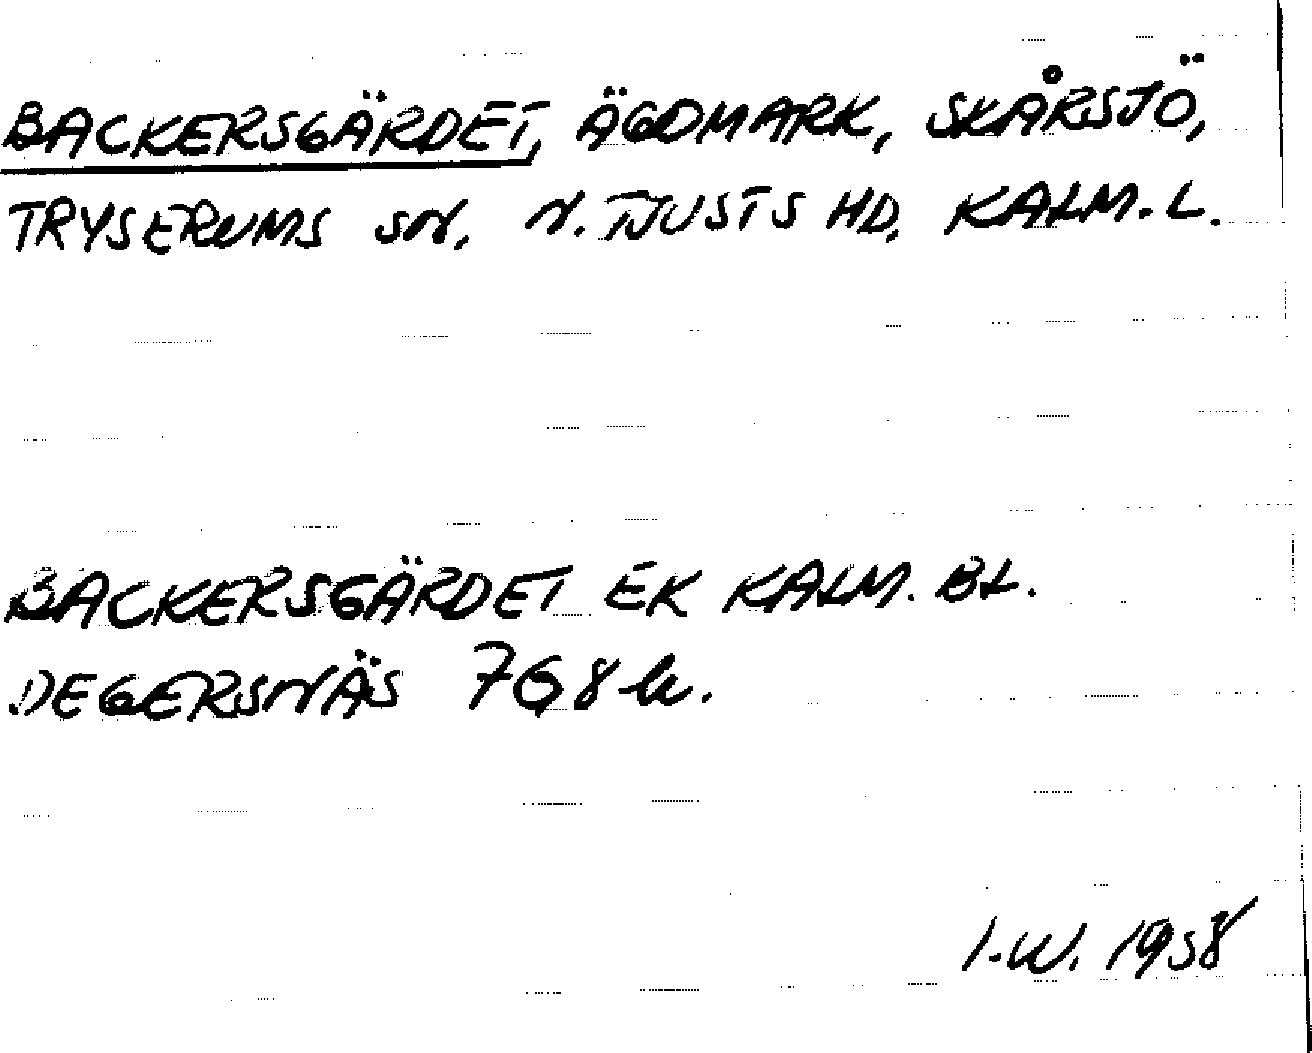 BACKERSGÄRDET, ÄGOMARK, SKÅRSJÖ,
TRYSERUMS SN, N. TJUSTS HD, KALM. L.
BACKERSGÄRDET EK KALM. BL.
DEGERSNÄS 768 k.
I.W. 1958